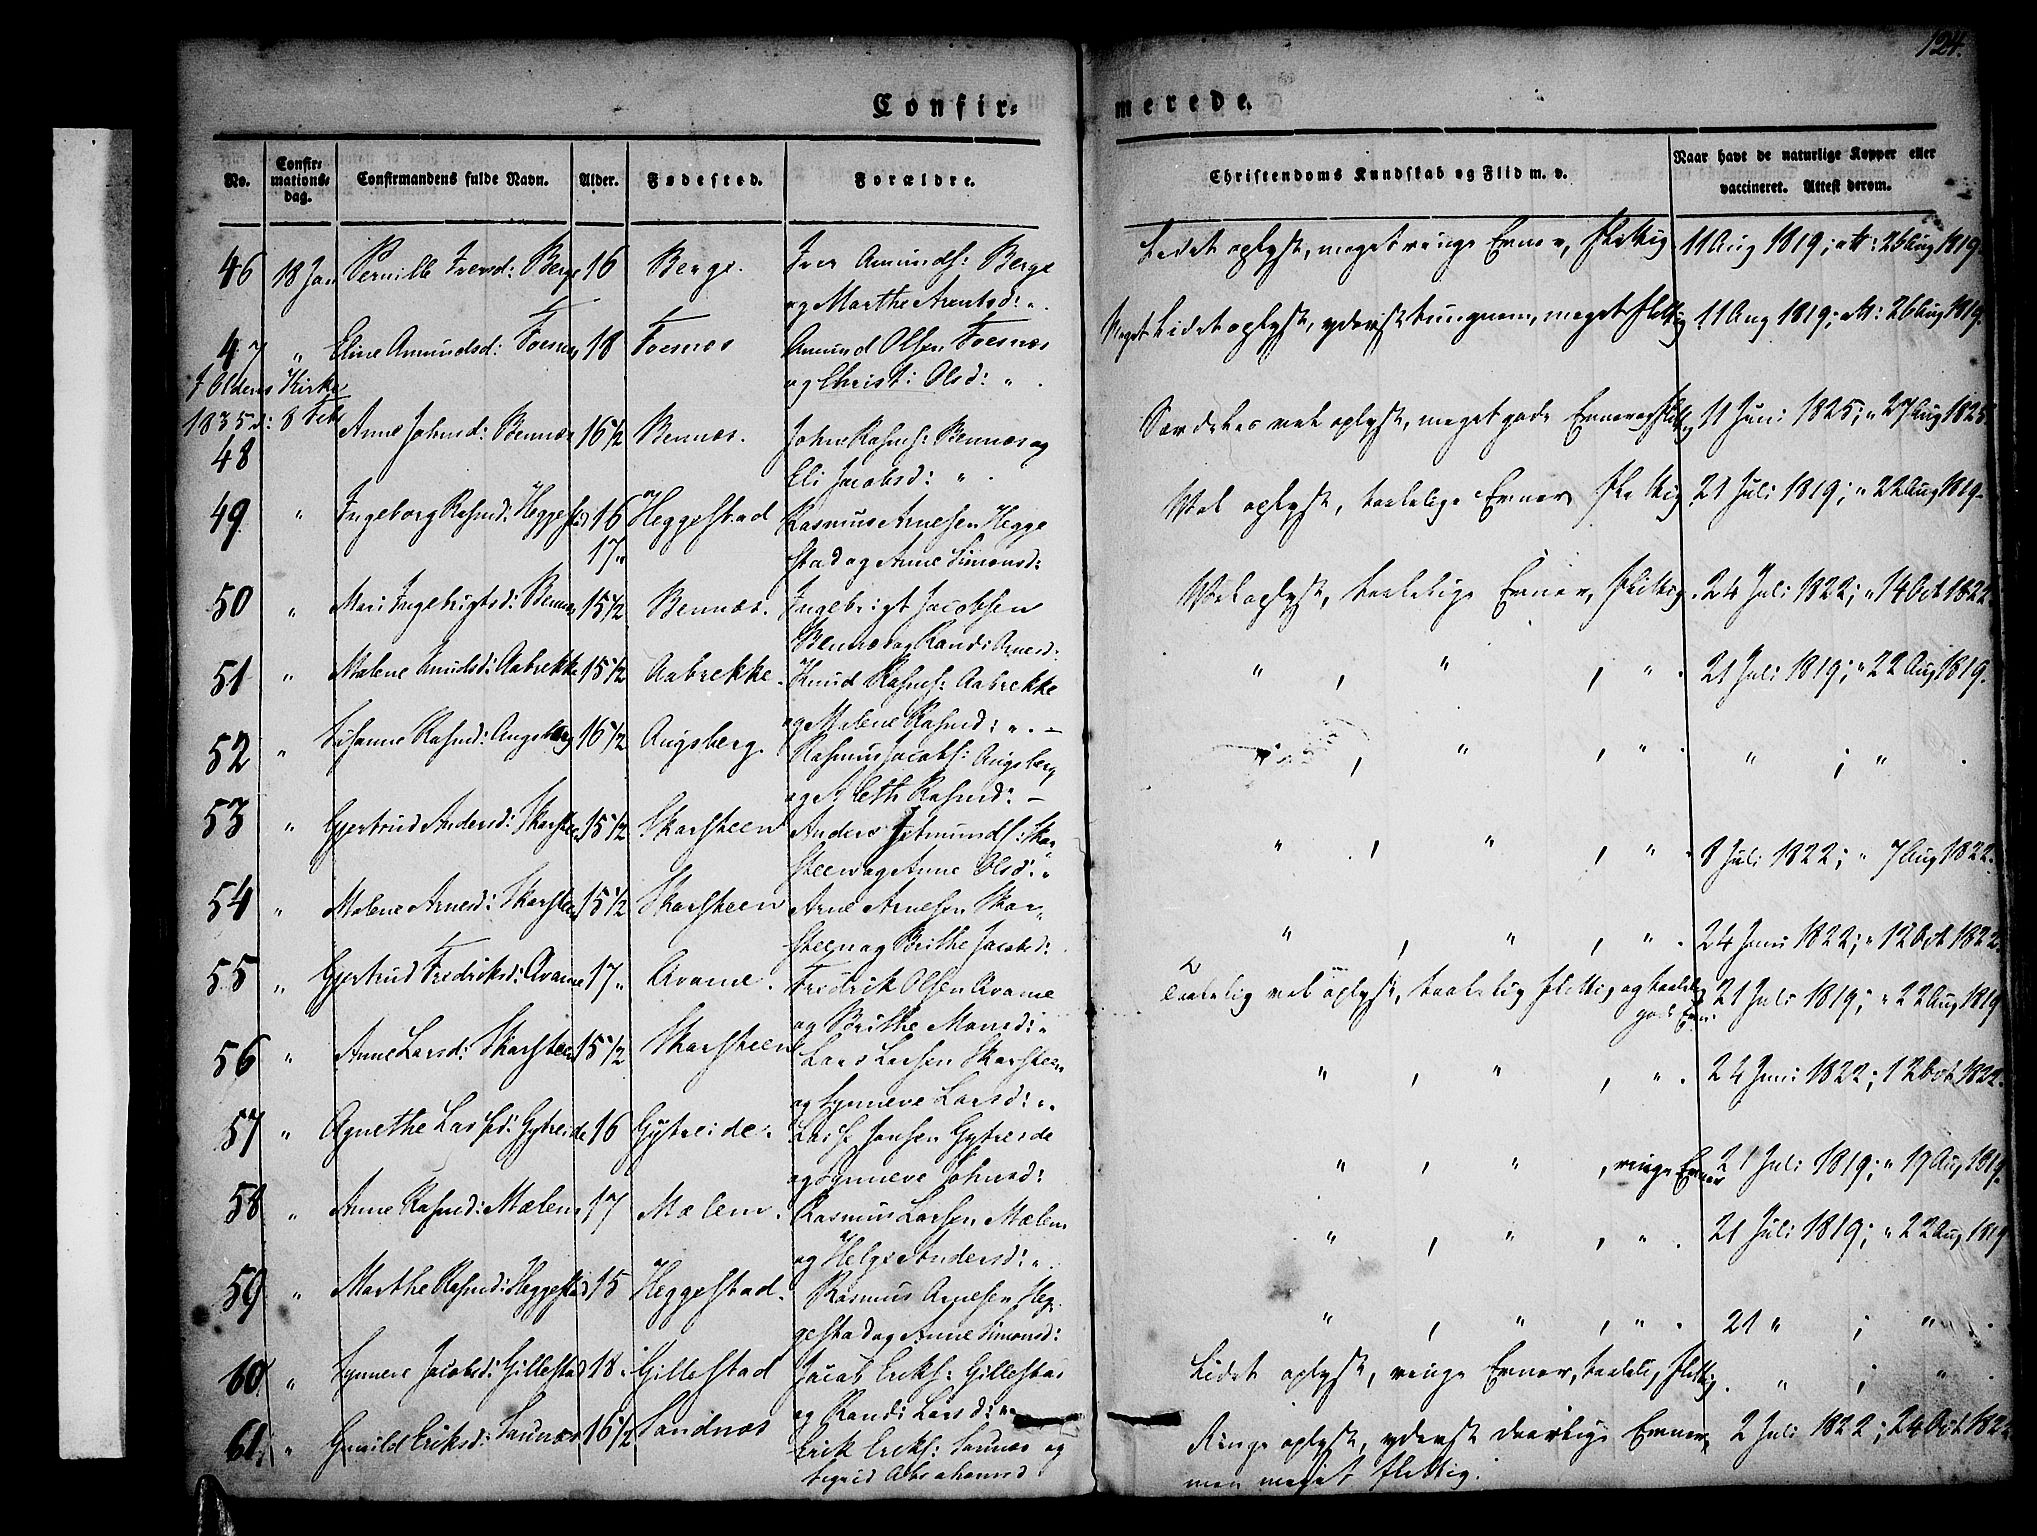 124.
Confir-
merede.
No.
Confir-
mations-
dag.
Confirmandens fulde Navn.
Alder.
Fødested.
Forældre.
Christendoms Kundskab og Flid m. v.
Naar havt de naturlige Kopper eller
vaccineret. Attest derom.
46 18 Jan Pernille Iversd: Berge 16 Berge. Iver Amunds: Berge
og Marthe Arentsd: „ .
Lidet oplyst, meget ringe Evner, flittig. 11 Aug 1819; Att: 26 Aug 1819.
47 „ Eline Amundsd: Foesnes 18 Foesnes Amund Olsen Foesnes
og Christi Olsd: „ .
Meget Lidet oplyst, yderst tungnem, meget flittig 11 Aug 1819; Att: 26 Aug 1819.
I Oldens Kirke
1835 d: 8 Feb
48 Anne Johnsd: Bennæs 16 1/2 Bennæs. John Rasms: Bennæs og
Eli Jacobsd: „ .
Særdeles vel oplyst, meget gode Evner og flittig 11 Juni 1825; „ 27 Aug 1825.
49 „ Ingeborg Rasmd: Heggestad 16 Heggestad Rasmus Arnesen Hegge
17 „ stad og Anne Simonsd:
Vel oplyst, taalelige Evner, flittig 21 Juli 1819; „ 22 Aug 1819.
50 „ Mari Ingebrigtsd: Bennæs 15 1/2 Bennæs. Ingebrigt Jacobsen
Bennæs og Randi Arnesd:
Vel oplyst, taalelige Evner, flittig. 24 Juli 1822; „ 14 Oct 1822.
51 „ Malene Knudsd: Aabrekke 15 1/2 Aabrekke. Knud Rasms: Aabrekke
og Malene Rasmd: „ . –
„ , „ , „ . 21 Juli 1819; „ 22 Aug 1819.
52 „ Susanne Rasmd: Augsberg 16 1/2 Augsberg. Rasmus Jacobs: Augsberg
Rasmd: –
„ , „ , „ . „ ; „ .
53 „ Gjertrud Andersd: Skarsteen 15 1/2 Skarsteen Anders Amunds: Skar
steen og Anne Olsd: „
„ , „ , „ . 8 Juli 1822; „ 7 Aug 1822.
54 „ Malene Arnesd: Skarsteen 15 1/2 Skarsteen Arne Arnesen Skar-
steen og Brithe Jacobsd:
„ , „ , „ . 24 Juni 1822; „ 12 Oct 1822.
55 „ Gjertrud Fredriksd: Qvame 17 „ Qvame. Fredrik Olsen Qvame
og Brithe Monsd: „
Taalelig vel oplyst, taalelig flittig og taalelig 21 Juli 1819; „ 22 Aug 1819
gode Evn:
56 „ Anne Larsd: Skarsteen 15 1/2 Skarsteen Lars Larsen Skarsteen
og Synneve Larsd: „ .
„ , „ , „ . 24 Juni 1822; 12 Oct 1822.
57 „ Agnethe Lassd: Gytreide 16 Gytreide. Lasse Jansen Gytreide
og Synneve Johnsd:
„ , „ , ringe Evner 21 Juli 1819; „ 19 Aug 1819.
58 „ Anne Rasmd: Mælem 17 Mælem. Rasmus Larsen Mælem
og Helge Andersd: „ .
„ , „ , „ . 21 Juli 1819; „ 22 Aug 1819
59 „ Marthe Rasmd: Heggestad 15 Heggestad. Rasmus Arnesen Heg
gestad og Anne Simonsd:
„ , „ , „ . 21 „ ; „ .
60. „ Synneve Jacobsd: Gillestad 18. Gillestad Jacob Eriks: Gillestad
og Randi Larsd: „
Lidet oplyst, ringe Evner, taalelig flittig. „ ; „ .
61. „ Gunild Eriksd: Saunæs 16 1/2 Sandnæs Erik Eriks: Saunæs og
Sigrid Abrahamsd
Ringe oplyst, yderst daarlige Evner, 2 Juli 1822; 24 Oct 1822
men meget flittig.